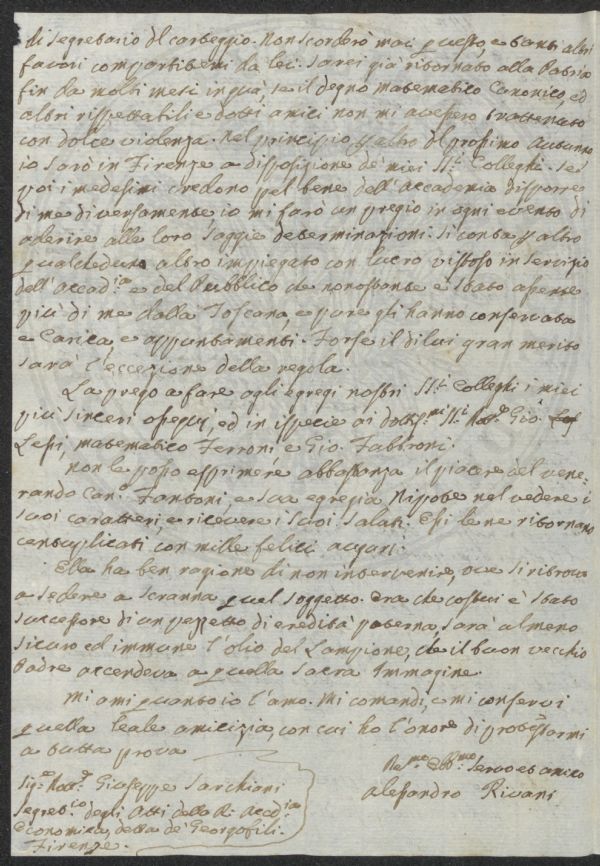 di Segretario del carteggio. Non scorderò mai questo, e tanti altri
favori compartitemi da lei. Sarei già ritornato alla Patria
fin da molti mesi in quà, se il degno matematico Canonico, ed
altri rispettabili e dotti amici non mi avessero trattenuto
con dolce violenza. Nel principio p altro del prossimo Autunno
io sarò in Firenze a disposizione de' miei SS.ri Colleghi. Se
poi i medesimi credono pel bene dell'Accademia disporre
di me diversamente io mi farò un pregio in ogni evento di
aderire alle loro saggie determinazioni. Si conta p altro
qualcheduno altro impiegato con lucro vistoso in servizio
dell'Accad.ia e del Pubblico che nonostante è stato assente
più di me dalla Toscana, e pure gli hanno conservata
e Carica, e appuntamenti. Forse il di lui gran merito
sarà l'eccezione della regola.
La prego a fare agli egregi nostri SS.ri Colleghi i miei
più sinceri ossequj, ed in ispecie ai dottiss.mi SS.ri Gio.
Lessi, matematico Ferroni e Gio. Fabbroni.
Non le posso esprimere abbastanza il piacere del vene-
rando Can.o Fantoni, e sua egregia Nipote nel vedere i
suoi caratteri, e ricevere i suoi saluti. Essi le ne ritornano
centuplicati con mille felici augurj.
Ella ha ben ragione di non intervenire, ove si ritrova
a sedere a scranna quel soggetto. Ora che costui è stato
successore di un pezzetto di eredità paterna sarà almeno
sicuro ed immune l'olio del Lampione, che il buon vecchio
Padre accendeva a quella Sacra Immagine.
Mi ami quanto io l'amo. Mi comandi, e mi conservi
quella leale amicizia, con cui ho l'onore di protestarmi
a tutta prova
Servo ed amico
Alessandro Rivani
Sig.e Giuseppe Sarchiani
Segret.io degli Atti della R. Accad.ia
Economica, detta de' Georgofili.
Firenze.